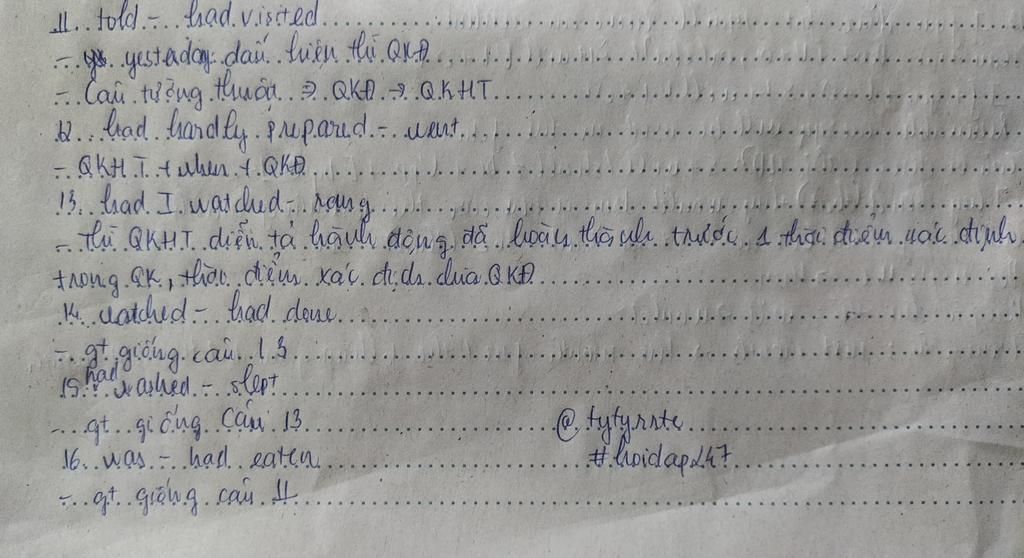 11. told - had visited
- yesterday: dấu hiệu thì QKĐ
- Câu tường thuật ⇒ QKĐ → QKHT
12. had hardly prepared - went
- QKHT + when + QKĐ
13. had I watched - rang
- Thì QKHT diễn tả hành động đã hoàn thành trước 1 thời điểm xác định
trong QK, thời điểm xác định chia QKĐ
14. watched - had done
- gt giống câu 13
15. had washed - slept
- gt giống câu 13
@tytyrste
16. was - had eaten
#hoidap247
- gt giống câu 11